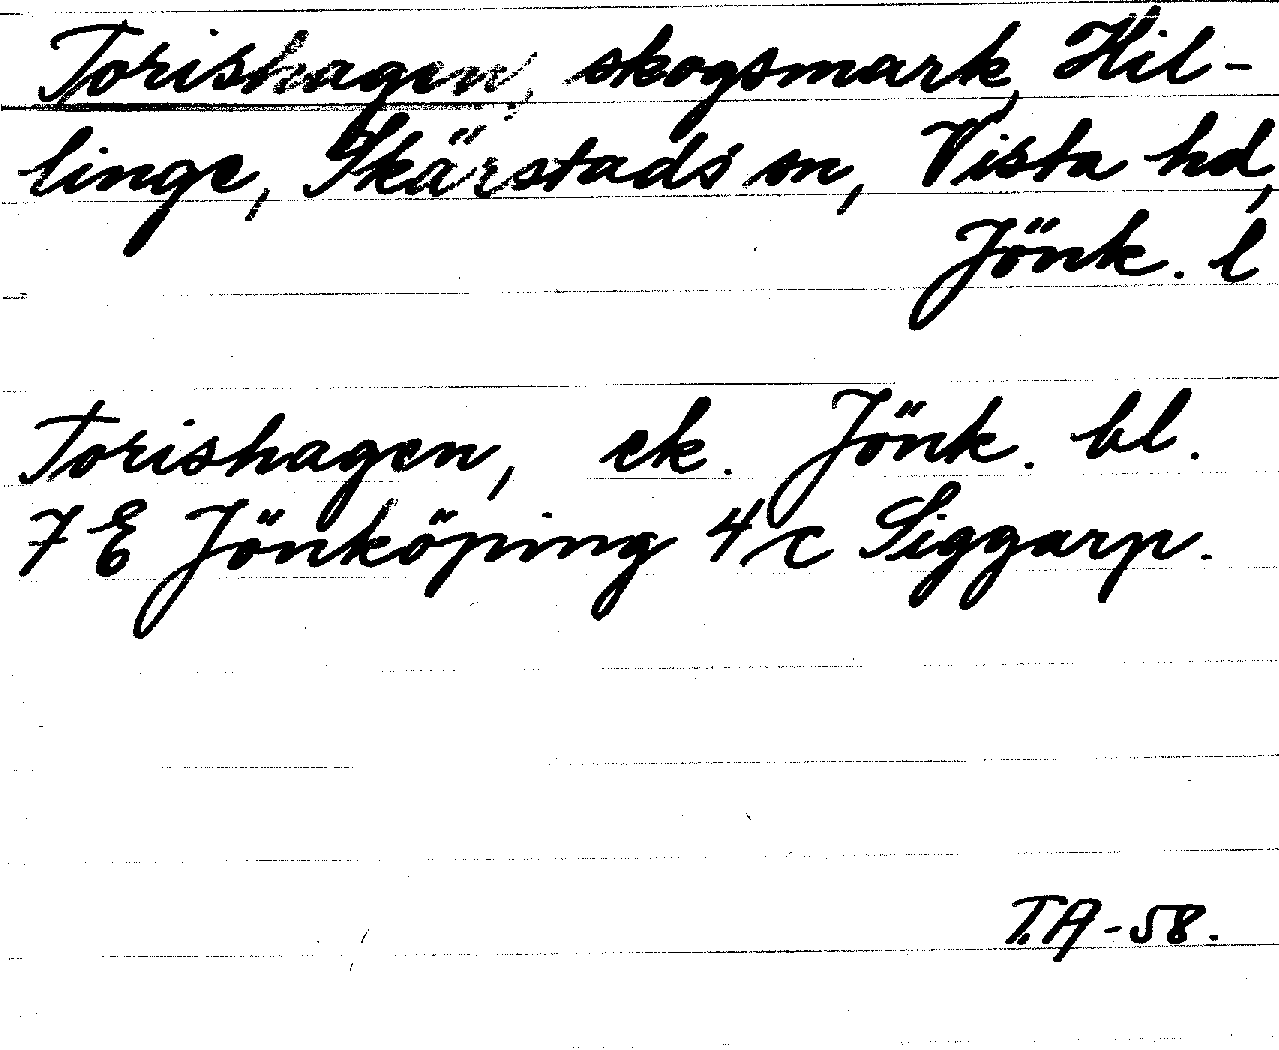 Torishagen, skogsmark, Hil-
linge, Skärstads sn, Vista hd,
Jönk. l
Torishagen, ek. Jönk. bl.
7 E Jönköping 4/c Siggarp.
T.A-58.